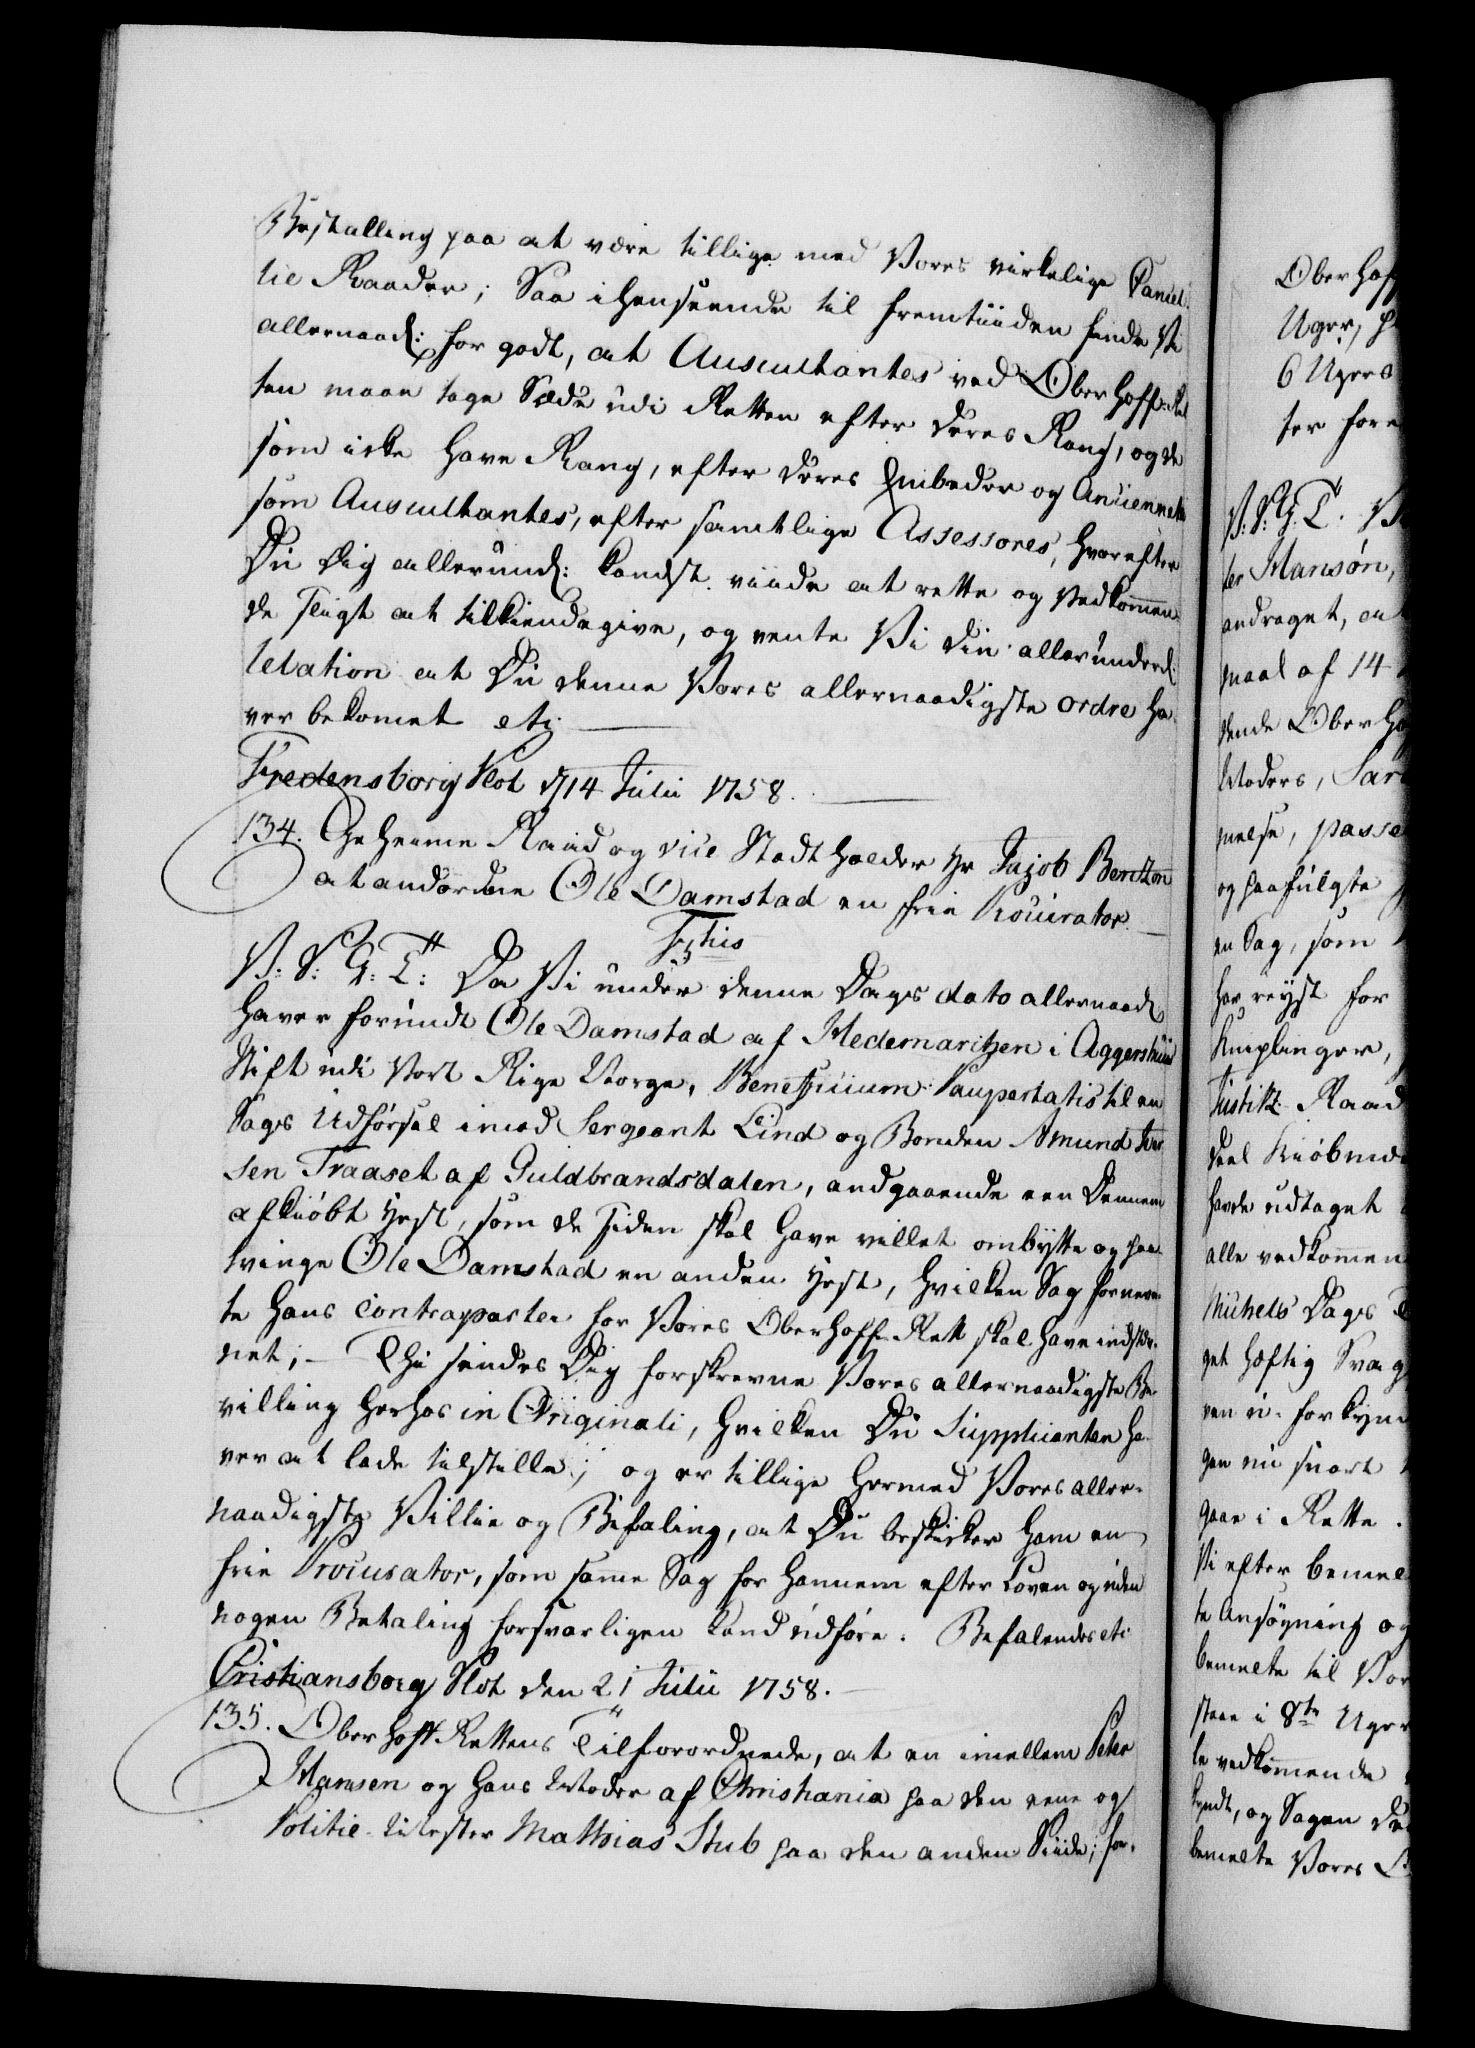 Bestalling paa at være tillige med Vores virkelige Cancel-
lie Raader; Saa i henseende til fremtiiden finde Vi
allernaad: for godt, at Auscultantes ved Oberhoff-Ret
ten maae tage Sæde udi Retten efter deres Rang, og de
som icke have Rang, efter deres Embeder og Anciennete
som Auscultantes, efter samtlige Assessores, hvorefter
Du Dig allerund: kandst viide at rette og Vedkommen
de sligt at tilkiendegive, og vente Vi din allerunderd:
relation at Du denne Vores allernaadigste ordre ha-
ver bekomet etc.
Fredensborg Slot d 14 Julii 1758.
134. Geheime Raad og vice Statholder Hr Jacob Bentzon
at anordne Ole Damstad en frie Procurator.
Frhis
V: S: G: T: Da Vi under denne Dags dato allernaad:
haver forundt Ole Damstad af Hedemarken i Aggershuus
Stift udi Vort Rige Norge, Beneficium Paupertatis til en
Sags Udførsel imod Sergeant Lind og Bonden Amund Iver
sen Traaset af Guldbrandsdalen, andgaaende een Dennem
afkiøbt Hest, som de siden skal have villet ombytte og paa-
tvinge Ole Damstad en anden Hest, hvilken Sag fornevn-
te hans Contraparter for Vores Oberhoff-Rett skal have indstev-
net; - Thi sendes Dig forskrevne Vores allernaadigste Be-
villing herhos in Originali, hvilken Du Supplicanten ha-
ver at lade tilstille; og er tillige hermed Vores aller-
naadigste Villie og Befaling, at Du beskicker ham en
frie Procurator, som samme Sag for hannem efter Loven og uden
nogen Betaling forsvarligen kand udføre. Befalendes etc
Cristiansborg Slot den 21 Julii 1758.
135. Oberhoff-Rettens Tilforordnede, at en imellem Peter
Hansen og hans Moder af Christiania paa den eene og
Politie-Mester Mathias Stub paa den anden Siide, for-
Oberhoff
Uger,
6 Ugers
ter for
V: S: G: T.
ter Hansøn,
andraget, at
maal af 14
dende Oberho
Moders,
melse, passe
og paafulgte
en Sag, som
har reyst for
Kniplinger,
Justitz Raad
deel Kiøbmæ
havde udtaget
alle vedkommen
Michels Dags
get hæftig Svag
ven ei forkyn
gen nu snart
gaae i Rette.
Vi efter bemel-
te Ansøgning og
bemelte til Vor
staae i 8te Uger
le vedkommende
kyndt, og Sagen
bemelte Vores